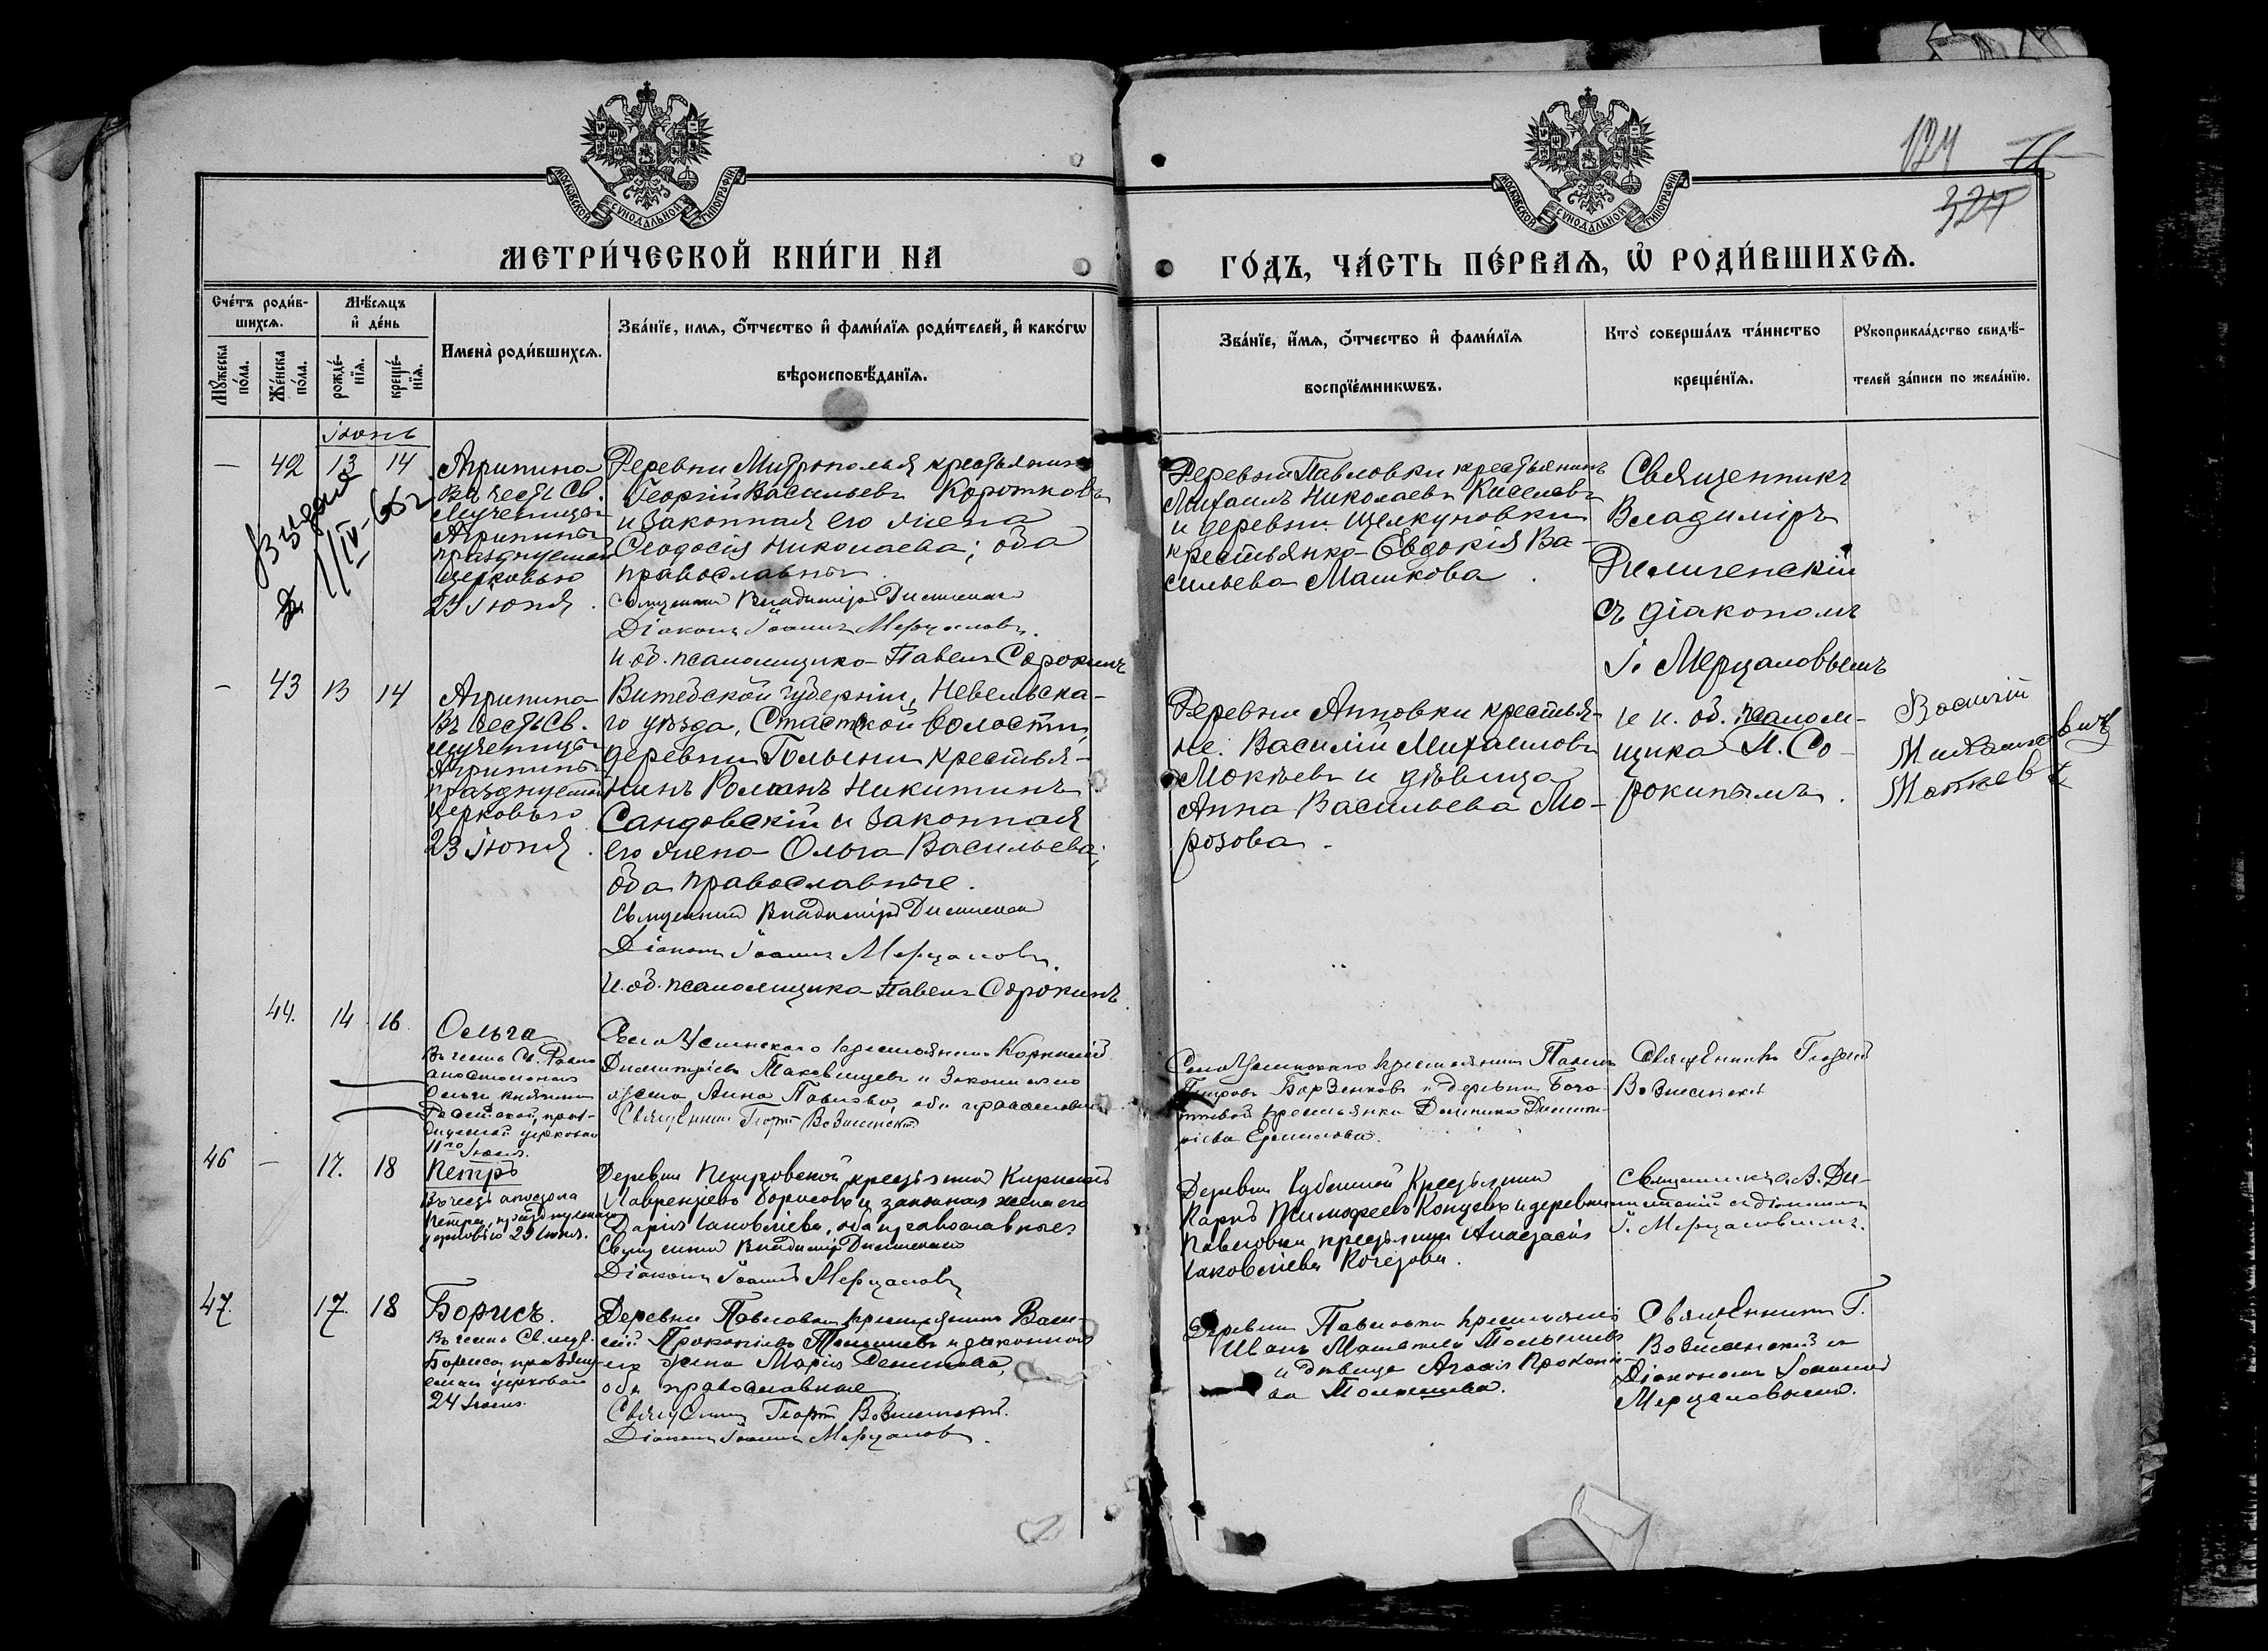 124
327
МОСКОВСКОЙ СѴНОДАЛЬНОЙ ТИПОГРАФІИ
МОСКОВСКОЙ СѴНОДАЛЬНОЙ ТИПОГРАФІИ
МЕТРИ́ЧЕСКОЙ КНИ́ГИ НА
ГО́ДЪ, ЧА́СТЬ ПЕ́РВАѦ, Ѡ҆ РОДИ́ВШИХСѦ.
Сче́тъ роди́в-
шихсѧ.
Мꙋ́жеска
по́ла.
Же́нска
по́ла.
Мѣ́сѧцъ
и҆ де́нь
рожде́-
нїѧ.
креще́-
нїѧ.
Имена̀ роди́вшихсѧ.
Зва́нїе, имѧ, ѻ҆́тчество и҆ фами́лїѧ роди́телей, и҆ како́гѡ
вѣроисповѣ́данїѧ.
Зва́нїе, и҆́мѧ, ѻ҆́тчество и҆ фами́лїѧ
воспрїе́мникѡвъ.
Кто̀ соверша́лъ та́инство
креще́нїѧ.
Рꙋкоприкла́дство свидѣ́-
телей за́писи по жела́нїю.
Іюнь
— 42 13 14
Агрипина
Въ честь Св.
Мученицы
Агрипины
празднуемой
Церковью
23 Іюня.
Деревни Митрополья крестьянинъ
Георгій Васильевъ Коротковъ
и законная его жена
Ѳеодосія Николаева; оба
православны
Священникъ Владиміръ
Діаконъ Іоаннъ Мерцаловъ.
И. об. псаломщика Павелъ Сорокинъ
Деревни Павловки крестьянинъ
Михаилъ Николаевъ Киселевъ
и деревни Щелкуновки
крестьянка Евдокія Ва-
сильева Машкова.
Священникъ
Владиміръ
съ діакономъ
І. Мерцаловымъ
и и. об. псалом-
щика П. Со-
рокинымъ.
1/IV-66 г.
— 43 13 14
Агрипина
Въ честь Св.
мученицы
Агрипины
празднуемой
Церковью
23 Іюня.
Витебской губерніи, Невельска-
го уѣзда, волости,
деревни крестья-
нинъ Романъ Никитинъ
Сандовскій и законная
его жена Ольга Васильева;
оба православные.
Священникъ Владиміръ
Діаконъ Іоаннъ Мерцаловъ.
И. об. псаломщика Павелъ Сорокинъ
Деревни Анновки крестья-
не. Василій Михаиловъ
Мокѣевъ и дѣвица
Анна Васильева Мо-
розова.
Василій
44. 14 16
Ольга
Въ честь Св. Равно
апостольной
Ольги княгини
Россійской, праз-
днуемой церковью
11го Іюля.
крестьянинъ Корнилій
Димитріевъ и законная его
жена Анна Павлова, оба православны
Священникъ Георгій Вознесенскій
крестьянинъ Павелъ
Петровъ Борзенковъ и деревни
крестьянка Димит-
ріева Ермилова.
Священникъ Георгій
Вознесенскій
46 — 17. 18
Петръ
Въ честь апостола
Петра, празднуемаго
церковью 29 Іюня.
Деревни Петровской крестьянинъ Кириллъ
Лаврентьевъ Борисовъ и законная жена его
Дарія Іаковлева, оба православные
Священникъ Владиміръ
Діаконъ Іоаннъ Мерцаловъ
Деревни крестьянинъ
Карпъ Тимофеевъ Концевъ и деревни
Павловки крестьянка Анастасія
Іаковлева
Священникъ В.
съ діакономъ
І. Мерцаловымъ.
47. 17. 18
Борисъ.
Въ честь Св. муч.
Бориса празднуе-
маго церковью
24 Іюля.
Деревни Павловки крестьянинъ Васи-
лій Прокопіевъ и законная
его жена Марія
оба православные
Священникъ Георгій Вознесенскій.
Діаконъ Іоаннъ Мерцаловъ.
Деревни Павловки крестьяне
Иванъ
и дѣвица Агаѳія Прокопіе-
ва
Священникъ Г.
Вознесенскій съ
Діакономъ Іоанномъ
Мерцаловымъ.